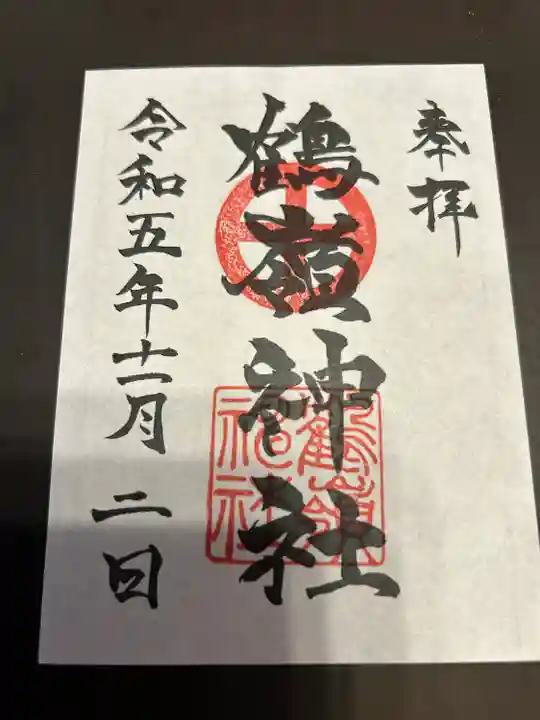 奉拝
鶴嶺神社
鶴嶺神社
令和五年十一月二日